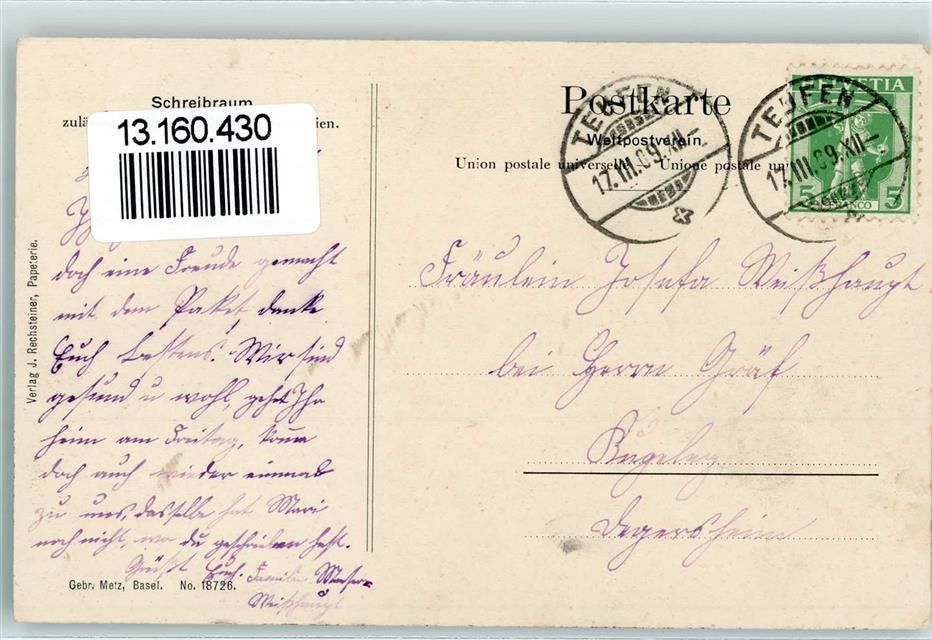 Schreibraum
zulä ien.
13.160.430
doch eine Freude gemacht
mit dem Paket, danke
Euch bestens! Wir sind
gesund u wohl, geht Ihr
heim am Freitag, komm
doch auch wieder einmal
zu uns, dasselbe hat Mari
noch nicht, wo du geschrieben hast.
Grüßt Euch. Familie
Weißhaupt
Verlag J. Rechsteiner, Papeterie.
Gebr. Metz, Basel. No. 18726.
Postkarte
Weltpostverein
Union postale universelle Unione postale un
TEUFEN
17.III.09.XII-
TEUFEN
17.III.09.XII-
HELVETIA
5 FRANCO 5
Fräulein Josefa Weißhaupt
bei Herrn Gräf
Degersheim